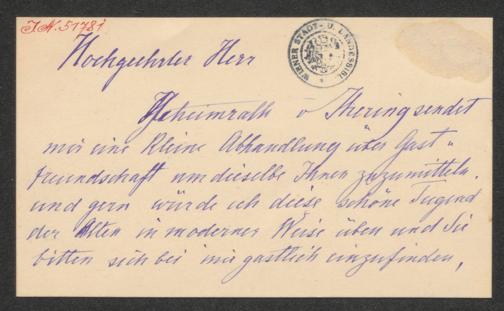 J.N. 51781
WIENER STADT- U. LANDESBIBL.
Hochgeehrter Herr
Geheimrath v Ihering sendet
mir eine kleine Abhandlung über Gast„
freundschaft um dieselbe Ihnen zuzumitteln.
und gern würde ich diese schöne Tugend
der Alten in moderner Weise üben und Sie
bitten sich bei mir gastlich einzufinden,